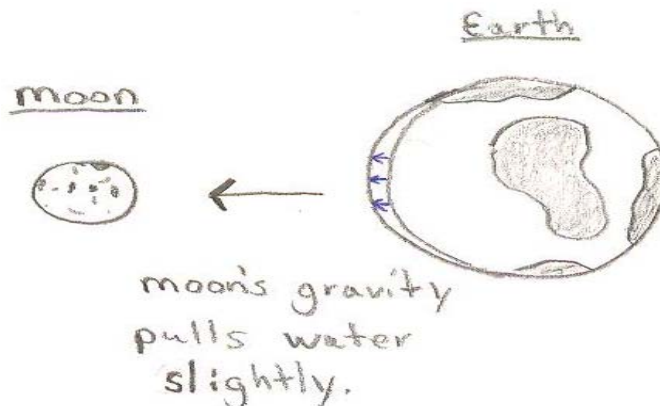 Earth
moon
moon's gravity
pulls water
slightly.